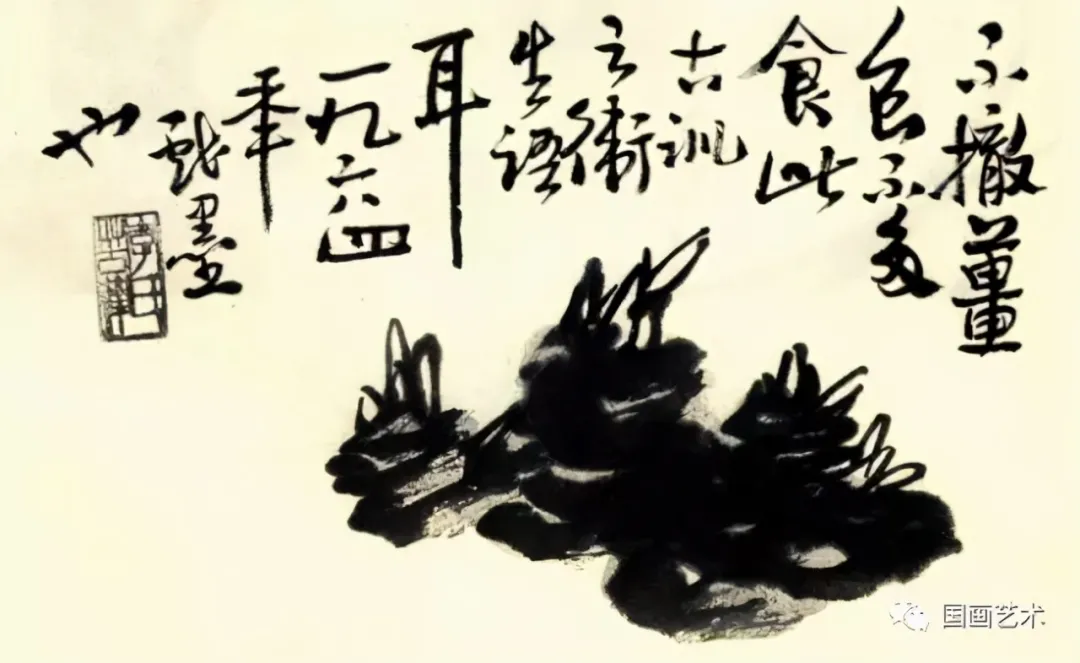 不撤薑
食不多
食此
古訓
云衛
生語
耳
一九六四
年
戲墨
也
国画艺术